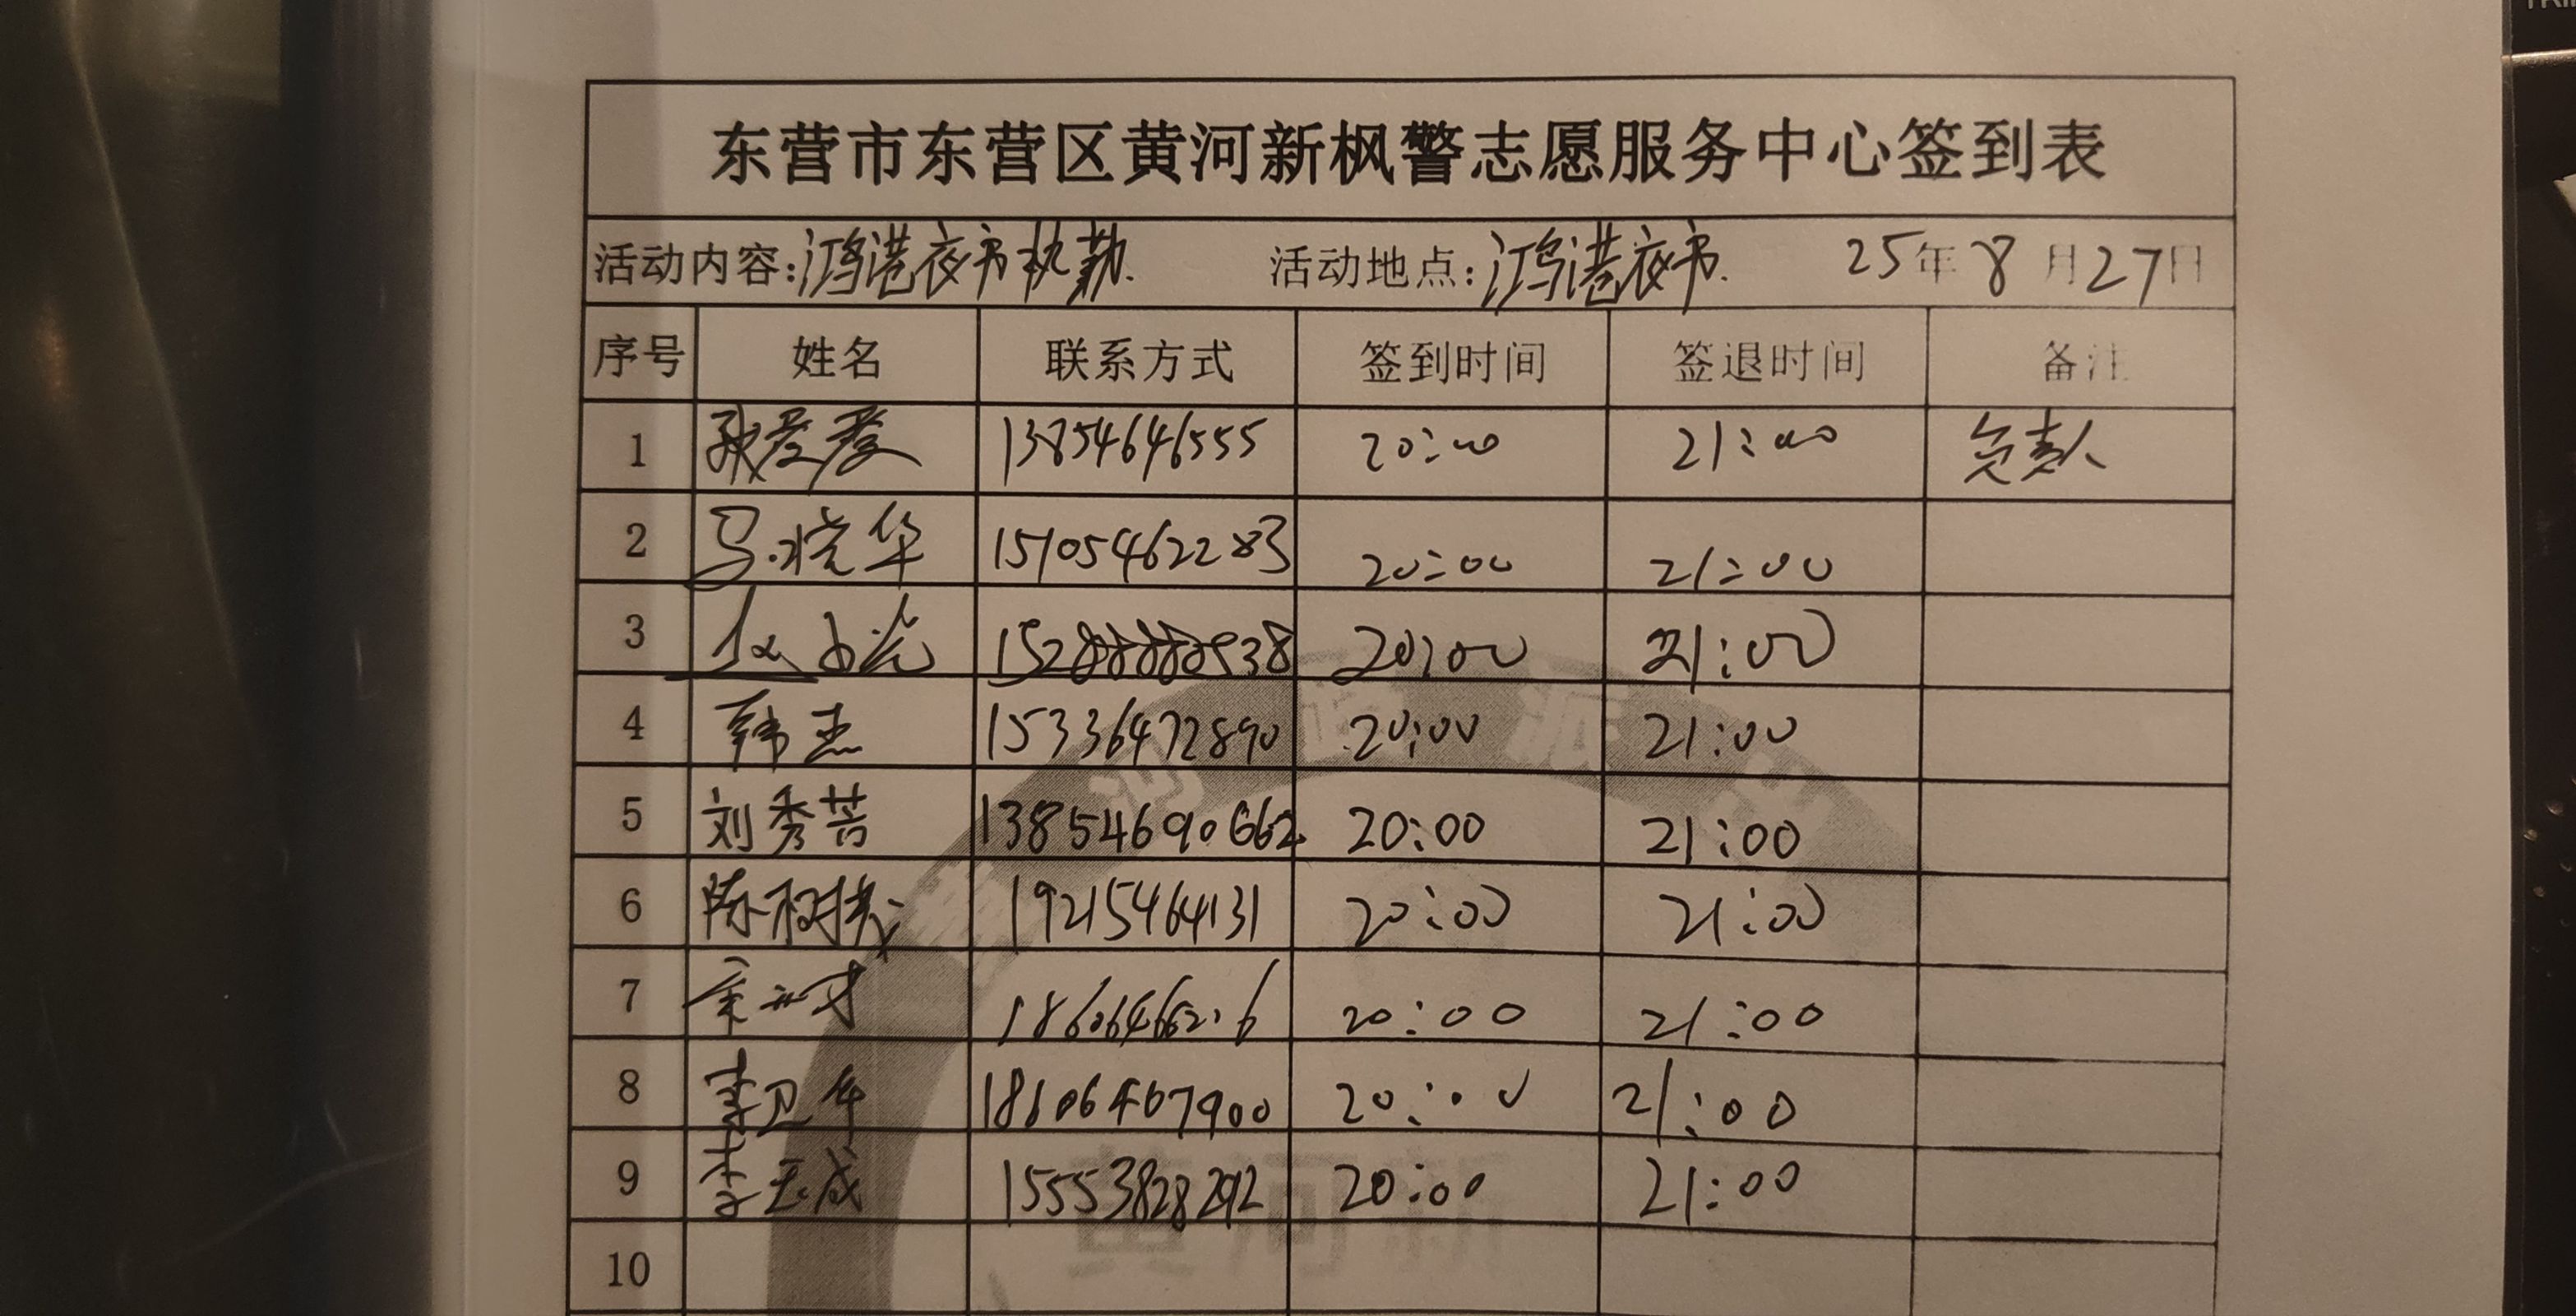 东营市东营区黄河新枫警志愿服务中心签到表
活动内容:鸿港夜市执勤. 活动地点:鸿港夜市. 25年8月27日
序号 姓名 联系方式 签到时间 签退时间 备注
1 13854646555 20:00 21:00 负责人
2 马晓华 15105462283 20:00 21:00
3 20:00 21:00
4 韩杰 15336472890 20:00 21:00
5 刘秀芸 13854690662 20:00 21:00
6 陈树 19215464131 20:00 21:00
7 20:00 21:00
8 李卫华 18606467900 20:00 21:00
9 李玉成 20:00 21:00
10
黄河新